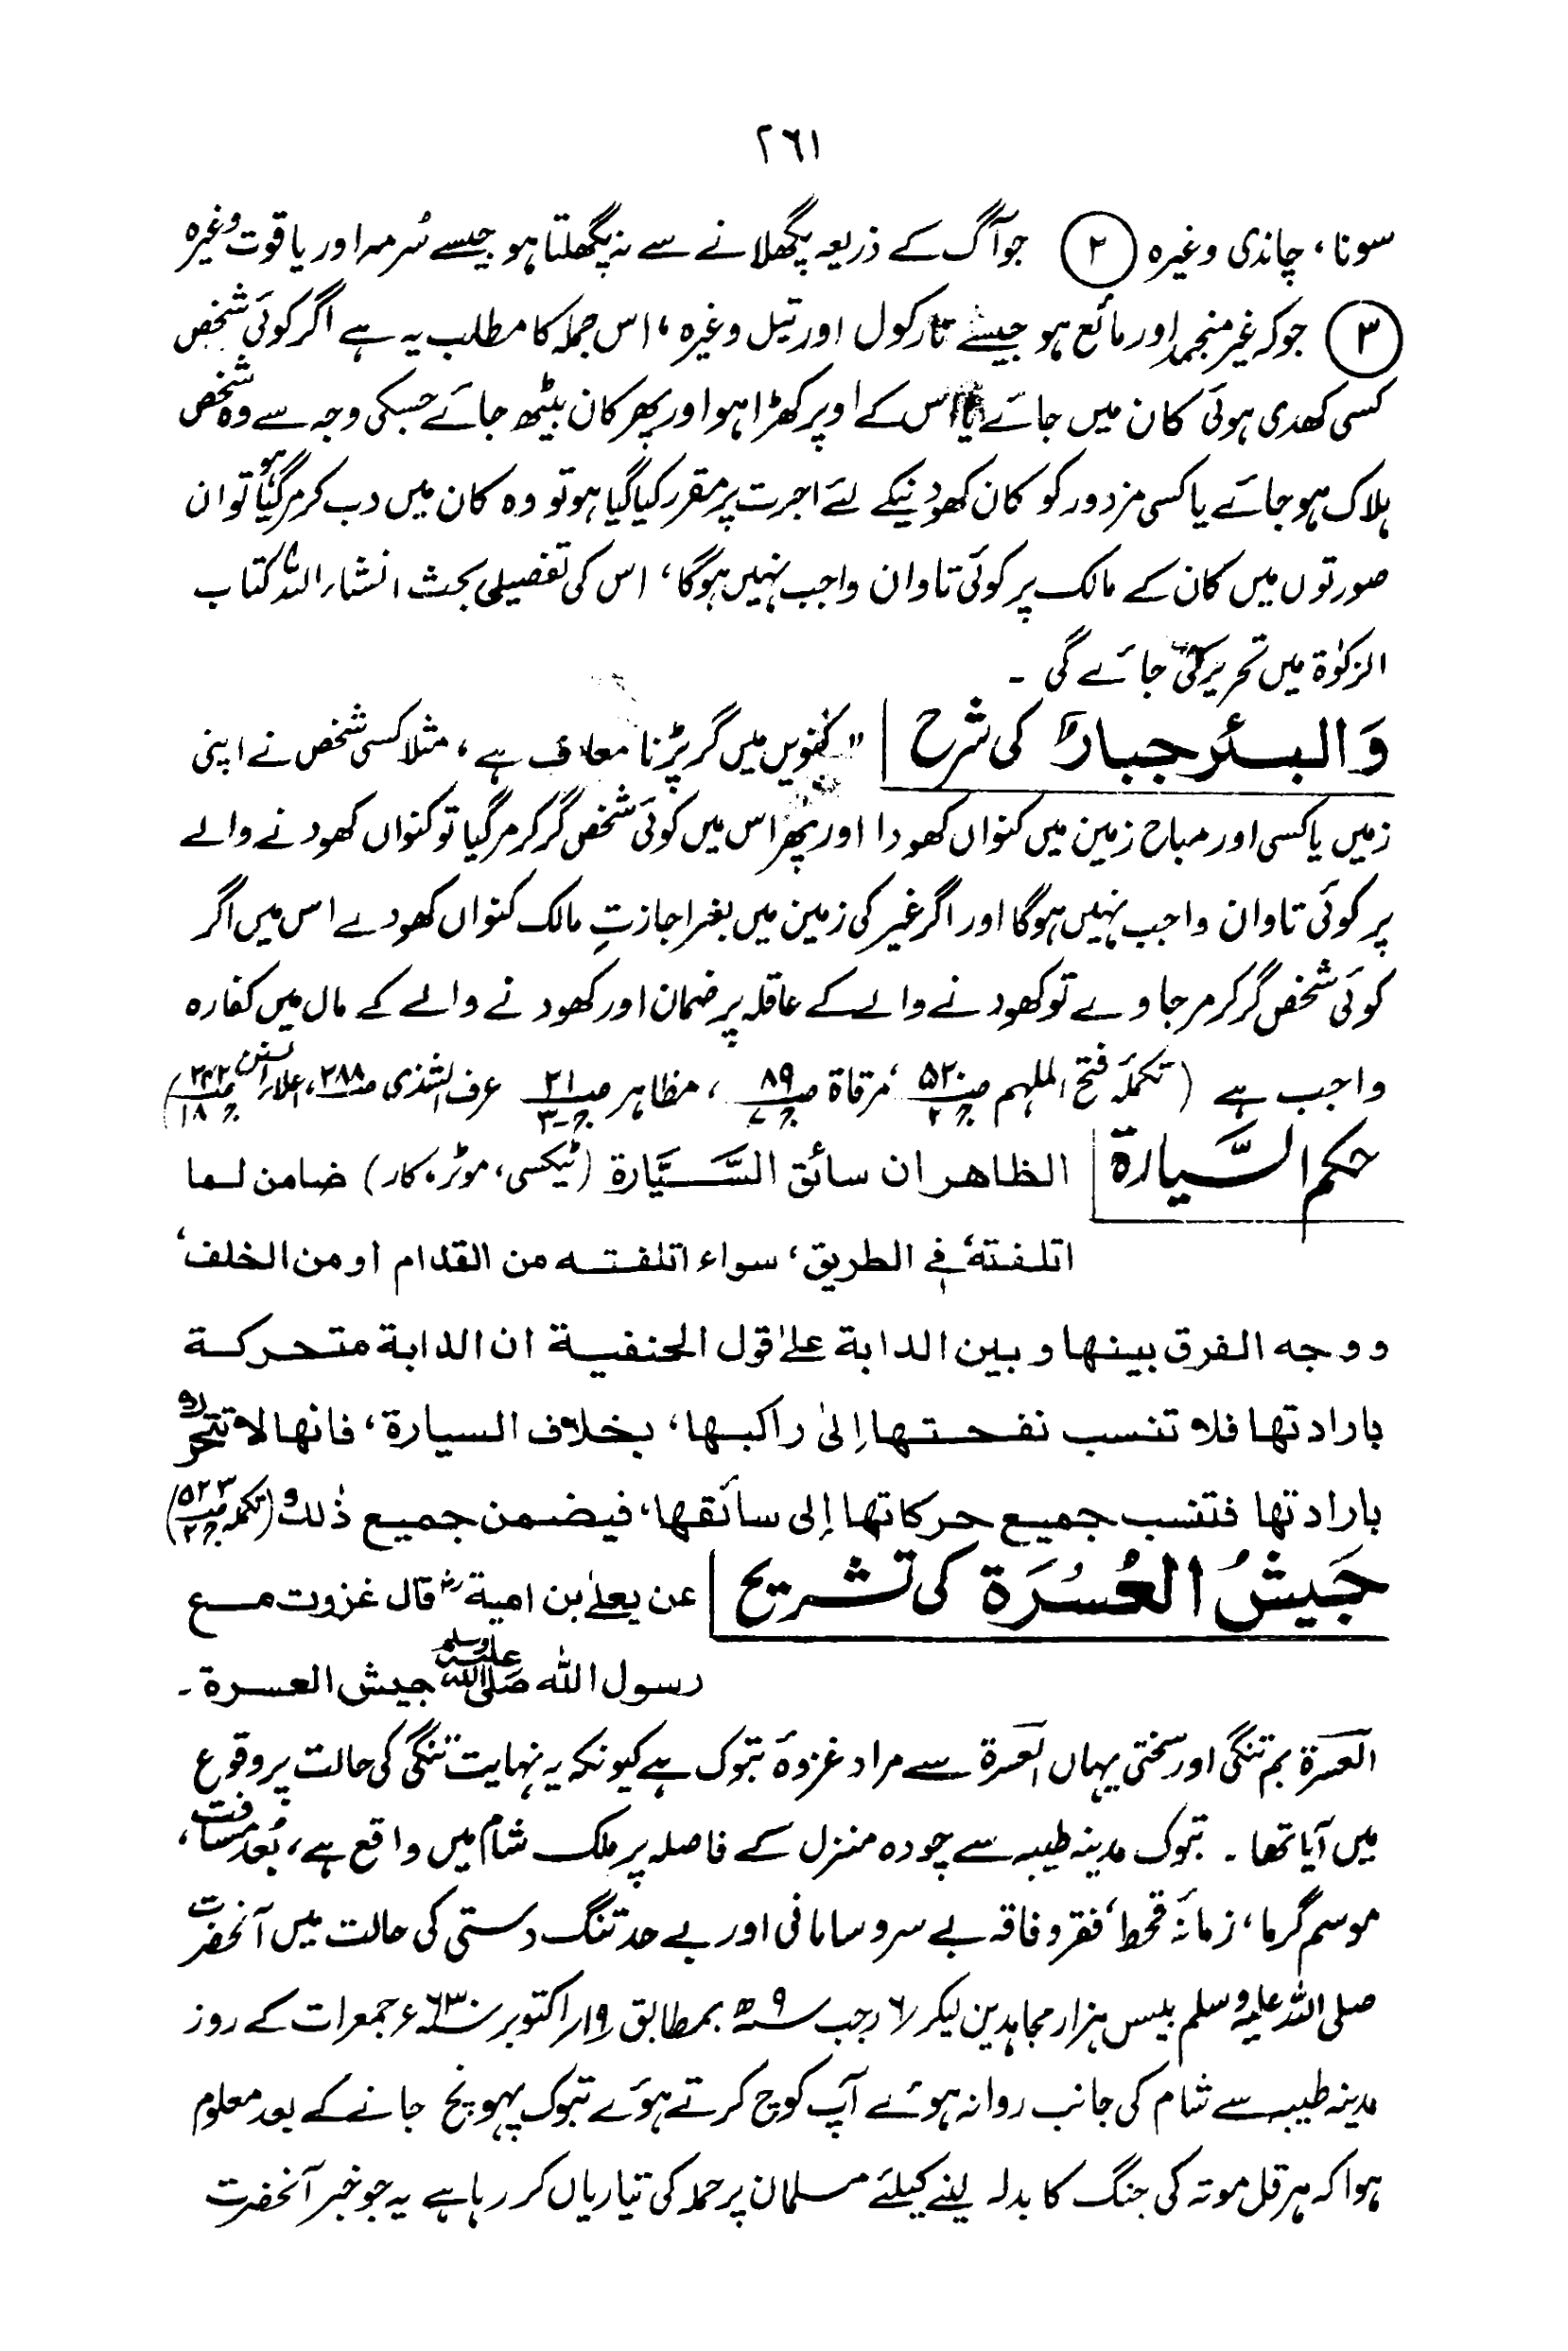 ۲۶۱
سونا، چاندی وغیرہ ② جو آگ کے ذریعہ پگھلانے سے نہ پگھلتا ہو جیسے سُرمہ اور یاقوت وغیرہ
③ جو کہ غیر منجمد اور مائع ہو جیسے تارکول اور تیل وغیرہ، اس جملہ کا مطلب یہ ہے اگر کوئی شخص
کسی کھدی ہوئی کان میں جائے یا اس کے اوپر کھڑا ہو اور پھر کان بیٹھ جائے جسکی وجہ سے وہ شخص
ہلاک ہو جائے یا کسی مزدور کو کان کھودنیکے لئے اجرت پر مقرر کیا گیا ہو تو وہ کان میں دب کر مر گیا ہو تو ان
صورتوں میں کان کے مالک پر کوئی تاوان واجب نہیں ہوگا، اس کی تفصیلی بحث انشاء اللہ کتاب
الزکوٰۃ میں تحریر کی جائے گی ۔
وَالبئر جبارٌ کی شرح | " کنویں میں گر پڑنا معاف ہے، مثلا کسی شخص نے اپنی
زمیں یا کسی اور مباح زمین میں کنواں کھودا اور پھر اس میں کوئی شخص گر کر مر گیا تو کنواں کھودنے والے
پر کوئی تاوان واجب نہیں ہوگا اور اگر غیر کی زمین میں بغیر اجازتِ مالک کنواں کھودے اس میں اگر
کوئی شخص گر کر مر جاوے تو کھودنے والے کے عاقلہ پر ضمان اور کھودنے والے کے مال میں کفارہ
واجب ہے (تکملۂ فتح الملہم صـ۵۲۰ جـ۲، مرقاۃ صـ۸۹ جـ۷، مظاہر صـ۲۱ جـ۳ عرف الشذی صـ۲۸۸، اعلاء السنن صـ۲۴۲ جـ۱۸)
حکم السَّیارة | الظاهر ان سائق السَّیَّارة (ٹیکسی، موٹر، کار) ضامن لما
اتلفتهٗ فی الطریق، سواء اتلفته من القدام او من الخلف،
ووجه الفرق بینها وبین الدابة علیٰ قول الحنفیة ان الدابة متحرکة
بارادتها فلا تنسب نفحتها إلیٰ راکبها، بخلاف السیارة، فانها لا تتحرك
بارادتها فتنسب جمیع حرکاتها إلی سائقها، فیضمن جمیع ذٰلك (تکملہ صـ۵۲۳ جـ۲)
جَیشُ العُسُرَة کی تشریح | عن یعلیٰ بن امیة رض قال غزوت مع
رسول الله صلی اللہ علیہ وسلم جیش العسرة ۔
العَسرۃ بم تنگی اور سختی یہاں العَسرۃ سے مراد غزوۂ تبوک ہے کیونکہ یہ نہایت تنگی کی حالت پر وقوع
میں آیا تھا ۔ تبوک مدینہ طیبہ سے چودہ منزل کے فاصلہ پر ملک شام میں واقع ہے، بُعد مسافت،
موسم گرما، زمانۂ قحط، فقر و فاقہ بے سروسامانی اور بے حد تنگ دستی کی حالت میں آنحضرت
صلی اللہ علیہ وسلم بیس ہزار مجاہدین لیکر ۶/ رجب ۹ھ بمطابق ۱۹/ اکتوبر ۶۳۰ء جمعرات کے روز
مدینہ طیبہ سے شام کی جانب روانہ ہوئے آپ کوچ کرتے ہوئے تبوک پہونچ جانے کے بعد معلوم
ہوا کہ ہرقل موتہ کی جنگ کا بدلہ لینے کیلئے مسلمان پر حملہ کی تیاریاں کر رہا ہے یہ جو خبر آنحضرت